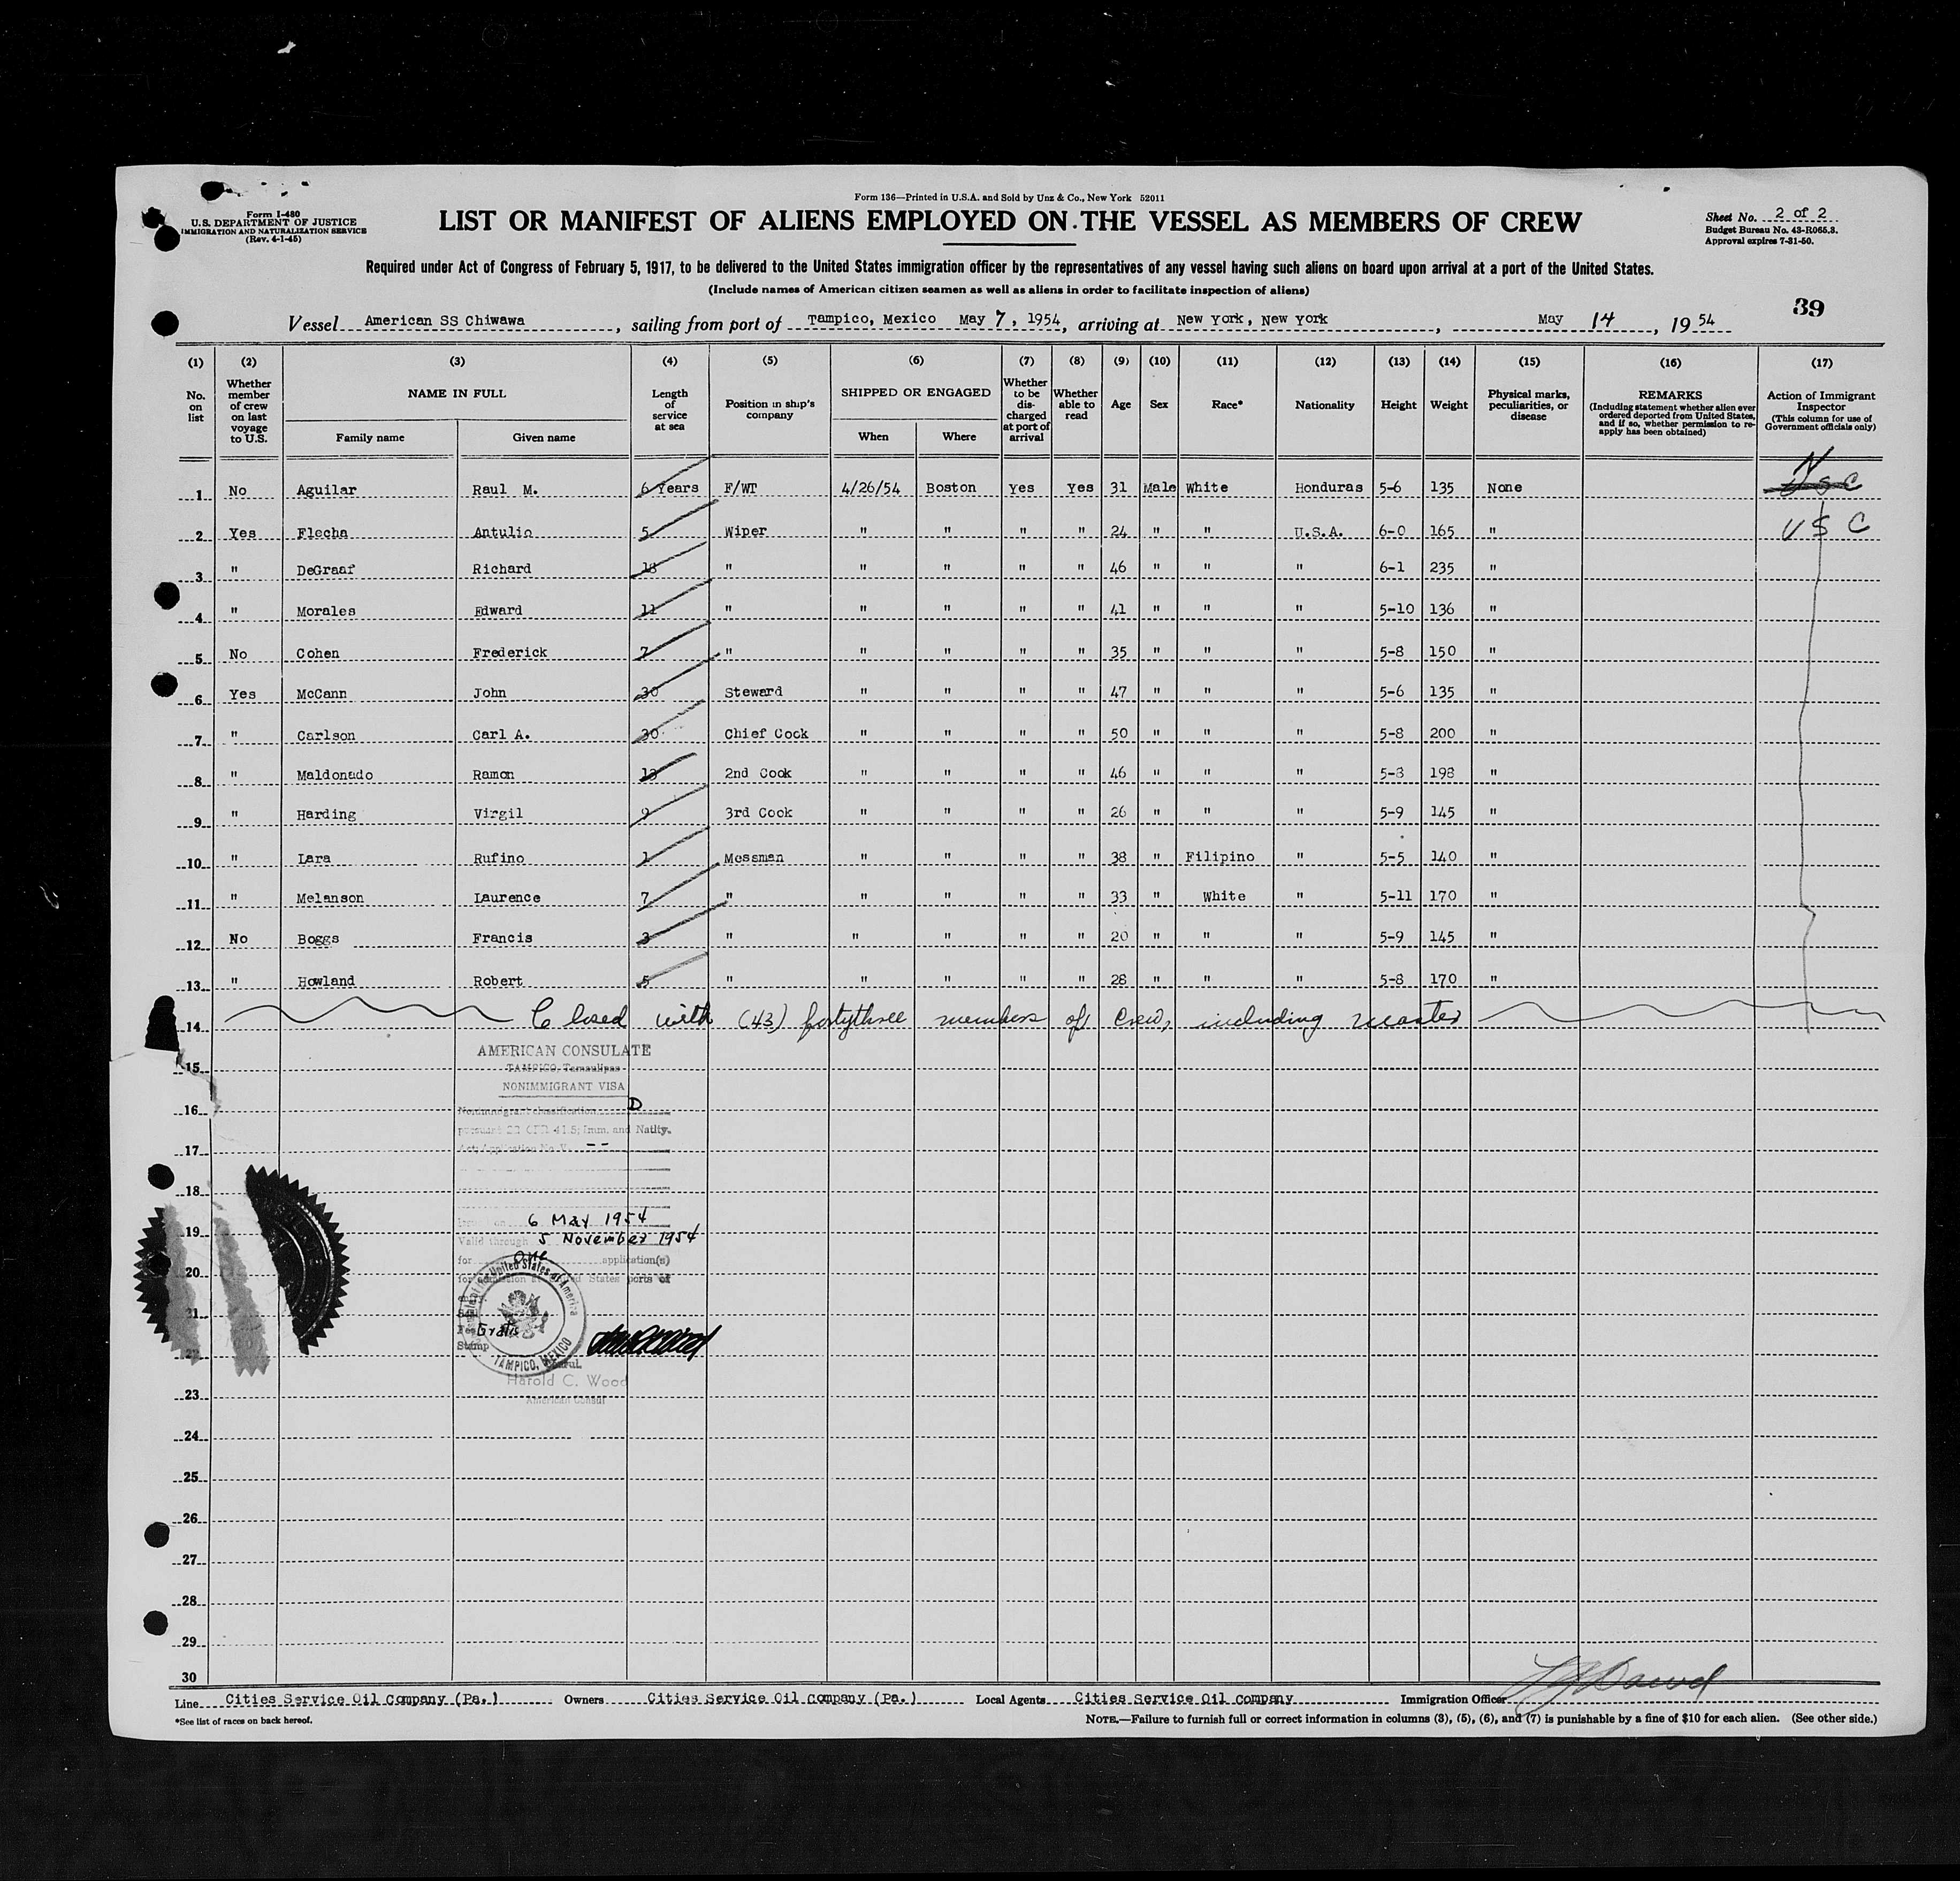 Form 136—Printed in U.S.A. and Sold by Unz & Co., New York 52011
Form I-480
U.S. DEPARTMENT OF JUSTICE
IMMIGRATION AND NATURALIZATION SERVICE
(Rev. 4-1-45)
LIST OR MANIFEST OF ALIENS EMPLOYED ON THE VESSEL AS MEMBERS OF CREW
Sheet No. 2 of 2
Budget Bureau No. 43-R065.3.
Approval expires 7-31-50.
Required under Act of Congress of February 5, 1917, to be delivered to the United States immigration officer by the representatives of any vessel having such aliens on board upon arrival at a port of the United States.
(Include names of American citizen seamen as well as aliens in order to facilitate inspection of aliens)
39
Vessel American SS Chiwawa, sailing from port of Tampico, Mexico May 7, 1954, arriving at New York, New York, May 14, 19 54
(1) (2) (3) (4) (5) (6) (7) (8) (9) (10) (11) (12) (13) (14) (15) (16) (17)
No. on list
Whether member of crew on last voyage to U.S.
NAME IN FULL
Family name Given name
Length of service at sea
Position in ship's company
SHIPPED OR ENGAGED
When Where
Whether to be discharged at port of arrival
Whether able to read
Age
Sex
Race*
Nationality
Height
Weight
Physical marks, peculiarities, or disease
REMARKS
(Including statement whether alien ever ordered deported from United States, and if so, whether permission to re-apply has been obtained)
Action of Immigrant Inspector
(This column for use of Government officials only)
1 No Aguilar Raul M. 6 Years F/WT 4/26/54 Boston Yes Yes 31 Male White Honduras 5-6 135 None USC
2 Yes Flecha Antulio 5 Wiper " " " " 24 " " U.S.A. 6-0 165 " U S C
3 " DeGraaf Richard 18 " " " " " 46 " " " 6-1 235 "
4 " Morales Edward 11 " " " " " 41 " " " 5-10 136 "
5 No Cohen Frederick 7 " " " " " 35 " " " 5-8 150 "
6 Yes McCann John 30 Steward " " " " 47 " " " 5-6 135 "
7 " Carlson Carl A. 30 Chief Cook " " " " 50 " " " 5-8 200 "
8 " Maldonado Ramon 13 2nd Cook " " " " 46 " " " 5-8 198 "
9 " Harding Virgil 9 3rd Cook " " " " 26 " " " 5-9 145 "
10 " Lara Rufino 1 Messman " " " " 38 " Filipino " 5-5 140 "
11 " Melanson Laurence 7 " " " " " 33 " White " 5-11 170 "
12 No Boggs Francis 3 " " " " " 20 " " " 5-9 145 "
13 " Howland Robert 5 " " " " " 28 " " " 5-8 170 "
14 Closed with (43) fortythree members of crew, including master
AMERICAN CONSULATE
15 TAMPICO, Tamaulipas
NONIMMIGRANT VISA
16 Nonimmigrant classification D
pursuant 22 CFR 41.5; Imm. and Natlty.
17 Act; Application No. V. --
18
Issued on 6 May 1954
19 Valid through 5 November 1954
for one application(s)
20 for admission at United States ports of
21
Fee Gratis
Stamp
22
TAMPICO, MEXICO
Harold C. Wood
23 American Consul
24
25
26
27
28
29
30
Line Cities Service Oil Company (Pa.) Owners Cities Service Oil Company (Pa.) Local Agents Cities Service Oil Company Immigration Officer
*See list of races on back hereof.
NOTE.—Failure to furnish full or correct information in columns (3), (5), (6), and (7) is punishable by a fine of $10 for each alien. (See other side.)